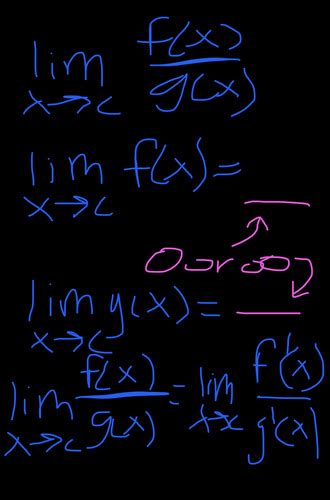 lim x→c f(x)/g(x)
lim x→c f(x) =
0 or ∞
lim x→c g(x) =
lim x→c f(x)/g(x) = lim x→c f'(x)/g'(x)